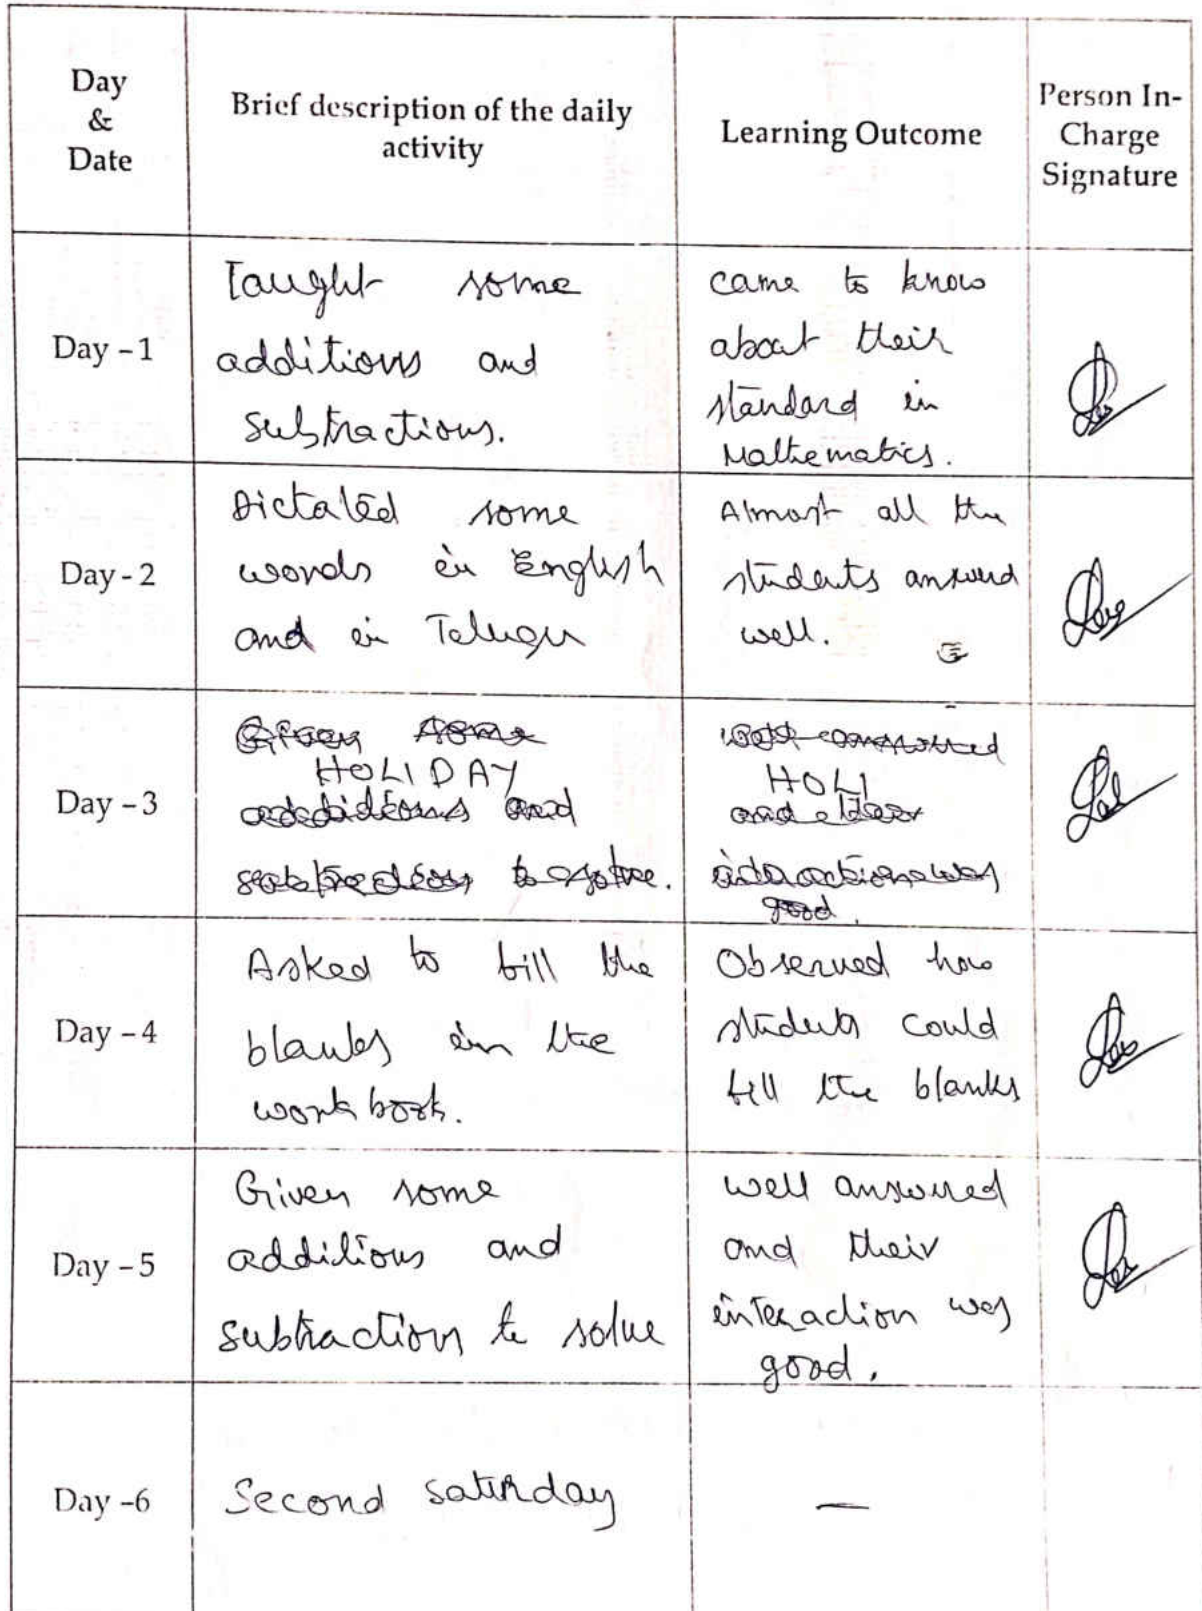 Day
&
Date
Brief description of the daily
activity
Learning Outcome
Person In-
Charge
Signature
Day - 1
Taught some
additions and
subtractions.
came to know
about their
standard in
Mathematics.
Day - 2
Dictated some
words in English
and in Telugu
Almost all the
students answerd
well.
Day - 3
Given some
HOLIDAY
additions and
subtractions to solve.
well answered
HOLI
and their
interaction was
good.
Day - 4
Asked to fill the
blanks in the
work book.
Observed how
students could
fill the blanks
Day - 5
Given some
additions and
subtraction to solve
well answered
and their
interaction was
good.
Day -6
Second saturday
—